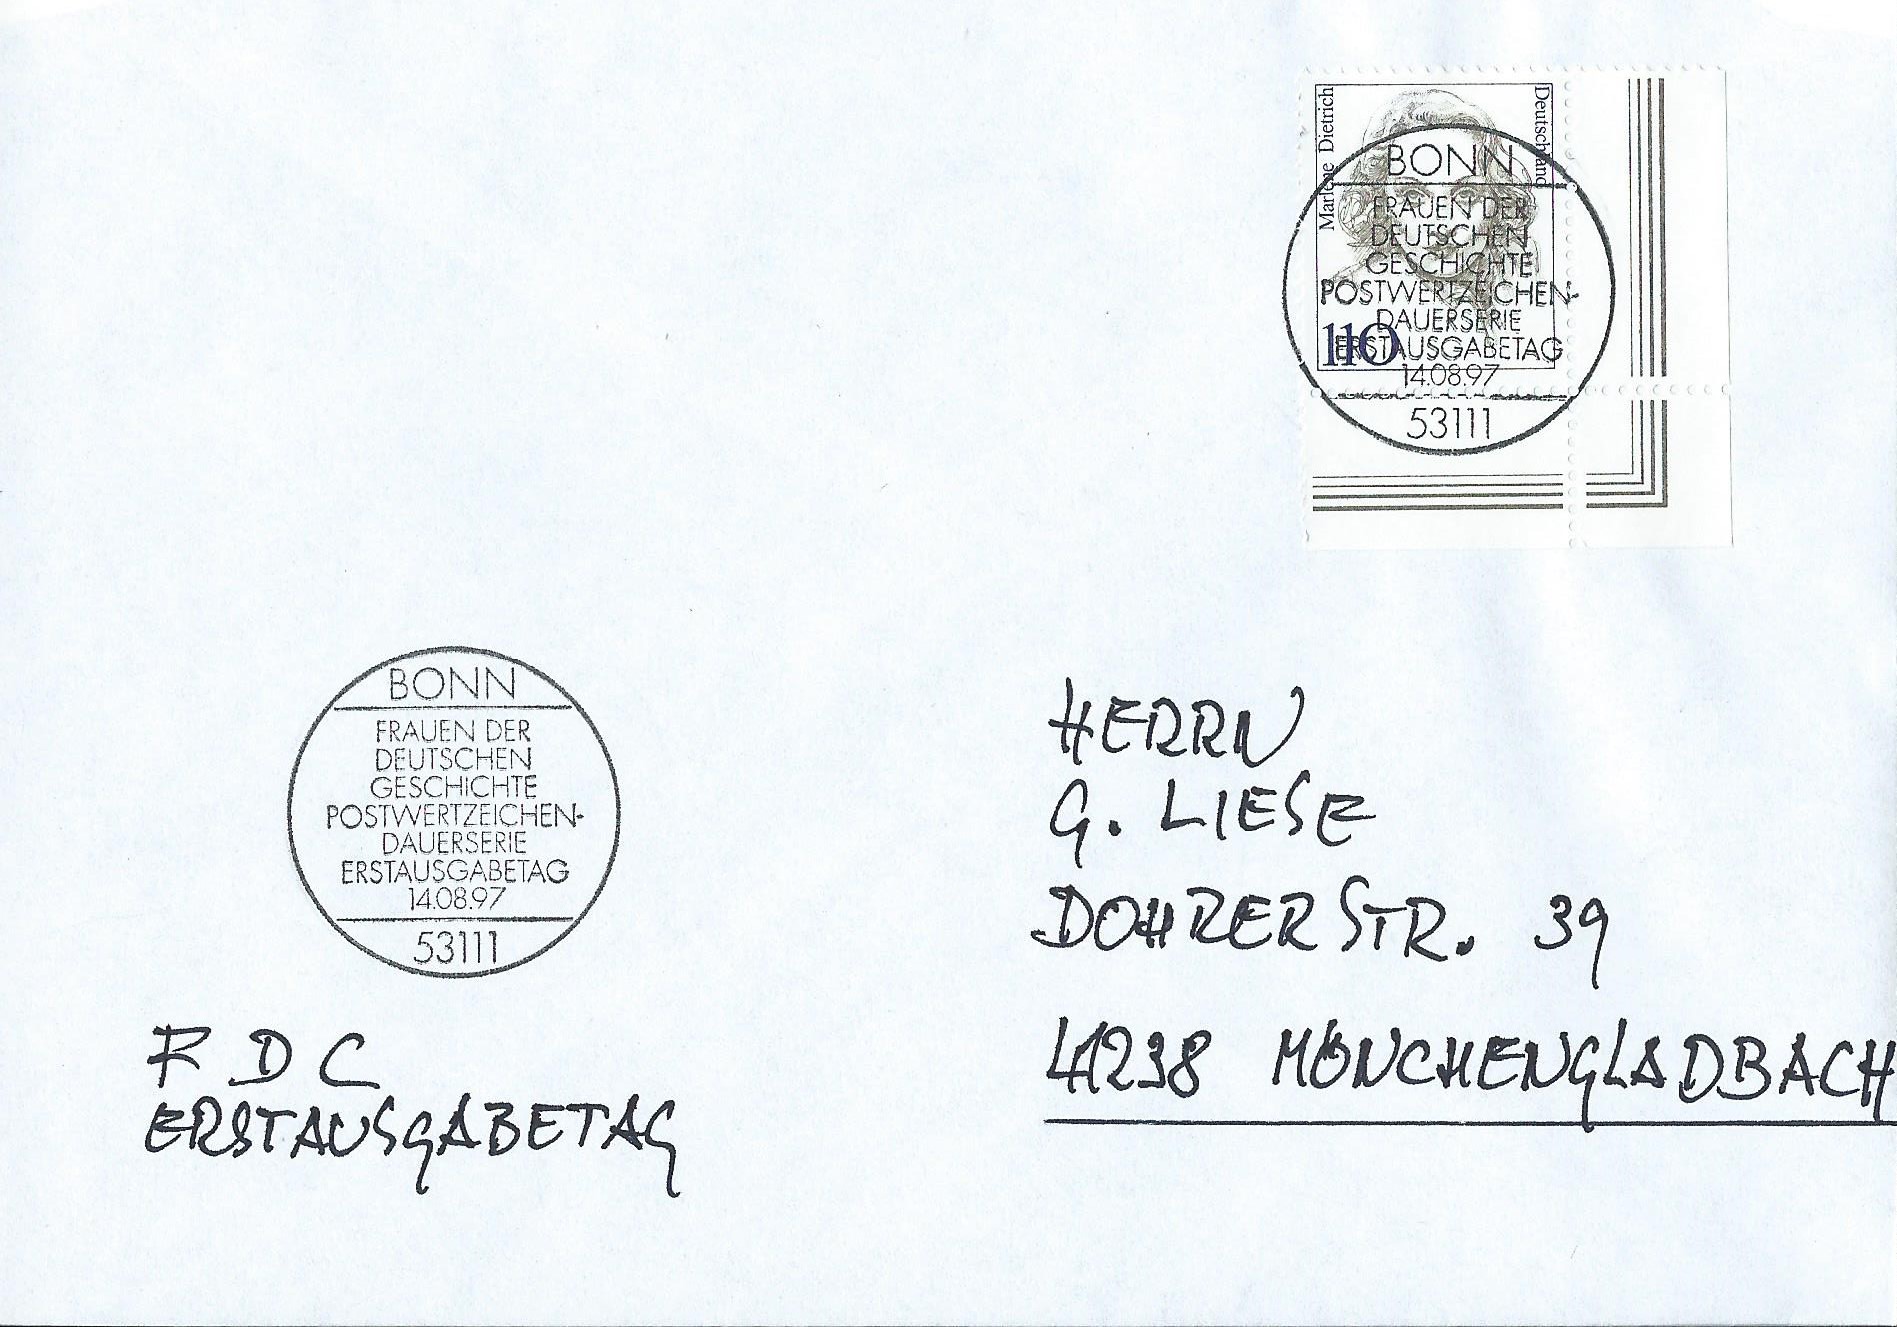 Marlene Dietrich
Deutschland
110
BONN
FRAUEN DER
DEUTSCHEN
GESCHICHTE
POSTWERTZEICHEN-
DAUERSERIE
ERSTAUSGABETAG
14.08.97
53111
BONN
FRAUEN DER
DEUTSCHEN
GESCHICHTE
POSTWERTZEICHEN-
DAUERSERIE
ERSTAUSGABETAG
14.08.97
53111
HERRN
G. LIESE
DOHRER STR. 39
41238 MÖNCHENGLADBACH
F D C
ERSTAUSGABETAG